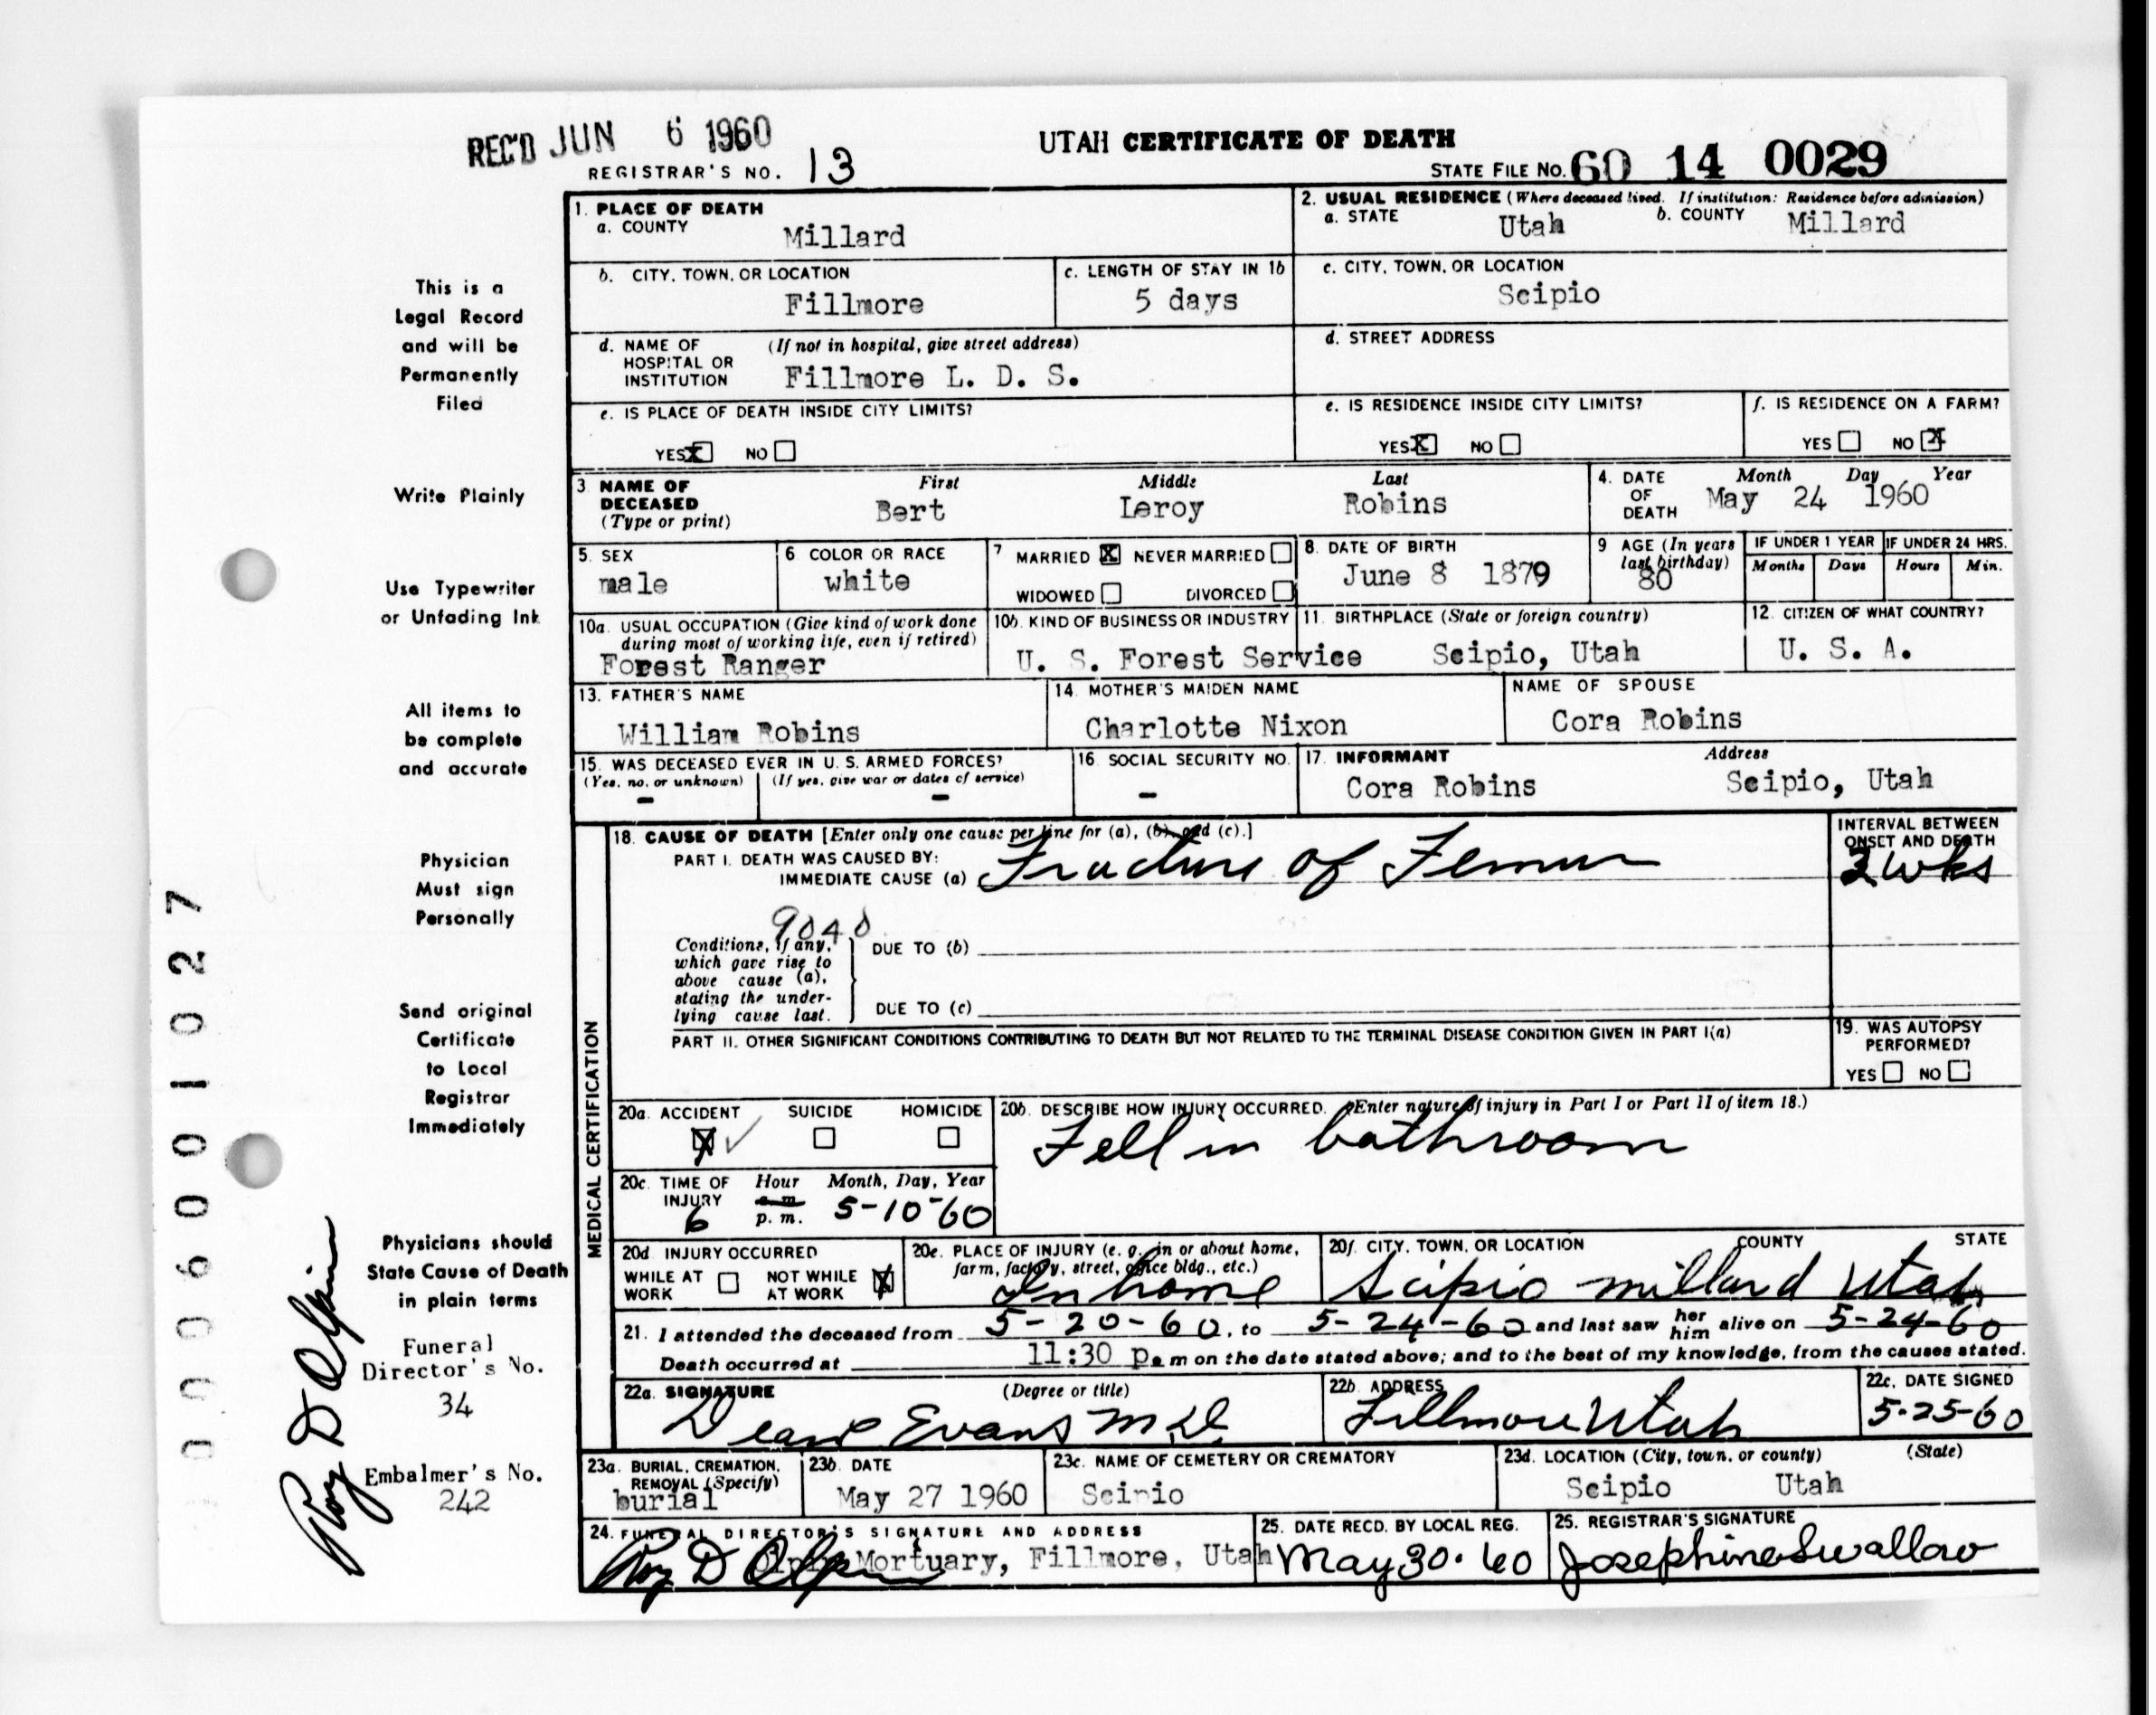 REC'D JUN 6 1960
UTAH CERTIFICATE OF DEATH
REGISTRAR'S NO. 13
STATE FILE NO. 60 14 0029
1. PLACE OF DEATH
a. COUNTY
Millard
2. USUAL RESIDENCE (Where deceased lived. If institution: Residence before admission)
a. STATE Utah b. COUNTY Millard
b. CITY, TOWN, OR LOCATION
Fillmore
c. LENGTH OF STAY IN 1b
5 days
c. CITY, TOWN, OR LOCATION
Scipio
d. NAME OF HOSPITAL OR INSTITUTION (If not in hospital, give street address)
Fillmore L. D. S.
d. STREET ADDRESS
e. IS PLACE OF DEATH INSIDE CITY LIMITS?
YES X NO
e. IS RESIDENCE INSIDE CITY LIMITS?
YES X NO
f. IS RESIDENCE ON A FARM?
YES NO X
3. NAME OF DECEASED (Type or print)
First Middle Last
Bert Leroy Robins
4. DATE OF DEATH Month Day Year
May 24 1960
5. SEX
male
6 COLOR OR RACE
white
7 MARRIED X NEVER MARRIED
WIDOWED DIVORCED
8. DATE OF BIRTH
June 8 1879
9 AGE (In years last birthday)
80
IF UNDER 1 YEAR IF UNDER 24 HRS.
Months Days Hours Min.
10a. USUAL OCCUPATION (Give kind of work done during most of working life, even if retired)
Forest Ranger
10b. KIND OF BUSINESS OR INDUSTRY
U. S. Forest Service
11. BIRTHPLACE (State or foreign country)
Scipio, Utah
12. CITIZEN OF WHAT COUNTRY?
U. S. A.
13. FATHER'S NAME
William Robins
14. MOTHER'S MAIDEN NAME
Charlotte Nixon
NAME OF SPOUSE
Cora Robins
15. WAS DECEASED EVER IN U. S. ARMED FORCES?
(Yes, no, or unknown) (If yes, give war or dates of service)
- -
16. SOCIAL SECURITY NO.
-
17. INFORMANT Address
Cora Robins Scipio, Utah
MEDICAL CERTIFICATION
18. CAUSE OF DEATH [Enter only one cause per line for (a), (b), and (c).]
PART I. DEATH WAS CAUSED BY:
IMMEDIATE CAUSE (a) Fracture of Femur
INTERVAL BETWEEN ONSET AND DEATH
2 wks
9040
Conditions, if any, which gave rise to above cause (a), stating the underlying cause last.
DUE TO (b)
DUE TO (c)
PART II. OTHER SIGNIFICANT CONDITIONS CONTRIBUTING TO DEATH BUT NOT RELATED TO THE TERMINAL DISEASE CONDITION GIVEN IN PART I(a)
19. WAS AUTOPSY PERFORMED?
YES NO
20a. ACCIDENT SUICIDE HOMICIDE
X ✓
20b. DESCRIBE HOW INJURY OCCURRED. (Enter nature of injury in Part I or Part II of item 18.)
Fell in bathroom
20c. TIME OF INJURY Hour Month, Day, Year
6 a. m. p. m. 5-10-60
20d. INJURY OCCURRED
WHILE AT WORK NOT WHILE AT WORK X
20e. PLACE OF INJURY (e. g., in or about home, farm, factory, street, office bldg., etc.)
In home
20f. CITY, TOWN, OR LOCATION COUNTY STATE
Scipio millard Utah
21. I attended the deceased from 5-20-60, to 5-24-60 and last saw her him alive on 5-24-60
Death occurred at 11:30 p. m on the date stated above; and to the best of my knowledge, from the causes stated.
22a. SIGNATURE (Degree or title)
Dean Evans M.D.
22b. ADDRESS
Fillmore Utah
22c. DATE SIGNED
5-25-60
23a. BURIAL, CREMATION, REMOVAL (Specify)
burial
23b. DATE
May 27 1960
23c. NAME OF CEMETERY OR CREMATORY
Scipio
23d. LOCATION (City, town, or county) (State)
Scipio Utah
24. FUNERAL DIRECTOR'S SIGNATURE AND ADDRESS
Roy D Olpin
Olpin Mortuary, Fillmore, Utah
25. DATE RECD. BY LOCAL REG.
May 30. 60
25. REGISTRAR'S SIGNATURE
Josephine Swallow
This is a
Legal Record
and will be
Permanently
Filed
Write Plainly
Use Typewriter
or Unfading Ink
All items to
be complete
and accurate
Physician
Must sign
Personally
Send original
Certificate
to Local
Registrar
Immediately
Physicians should
State Cause of Death
in plain terms
Funeral
Director's No.
34
Embalmer's No.
242
Roy D Olpin
0 0 9 6 0 0 1 0 2 7